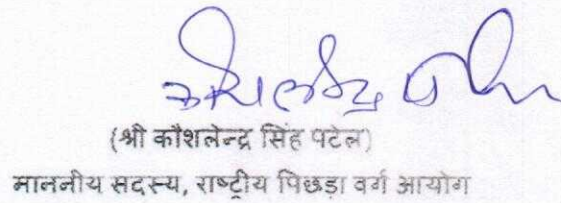 (श्री कौशलेन्द्र सिंह पटेल)
माननीय सदस्य, राष्ट्रीय पिछड़ा वर्ग आयोग